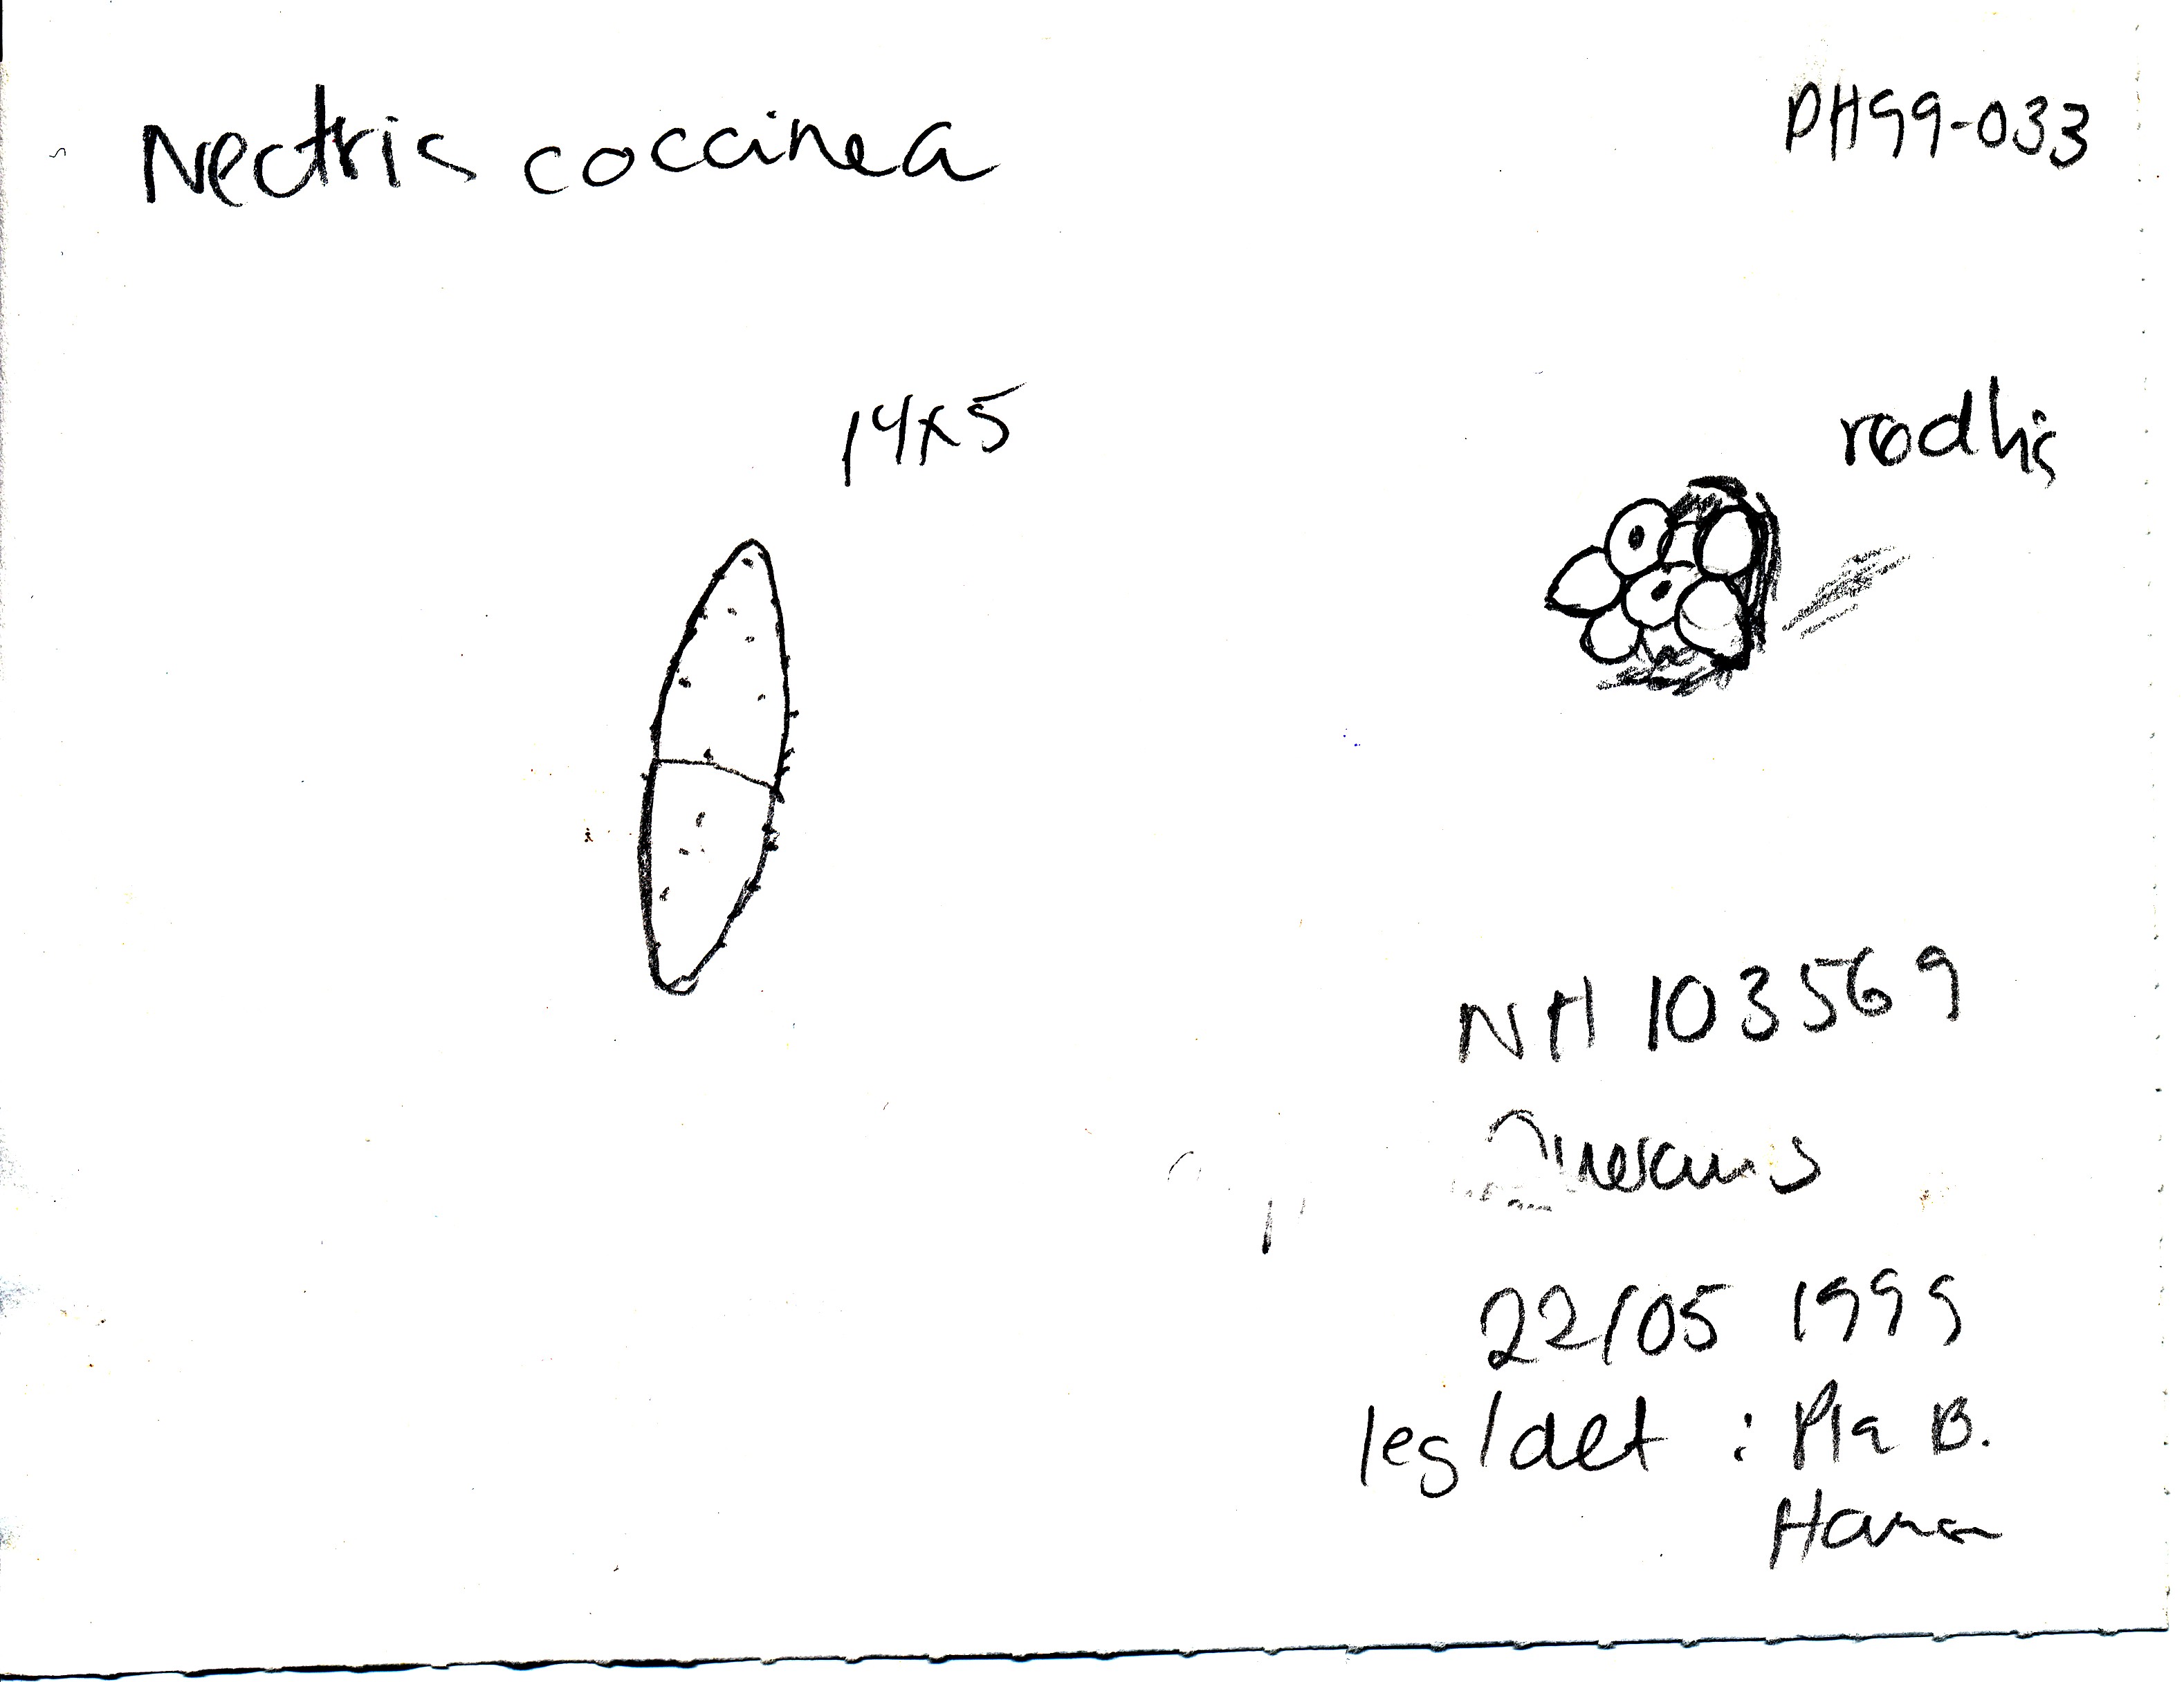 Nectria coccinea
PH99-033
14x5
rødlig
NH 103569
22/05 1999
leg/det : Pia B.